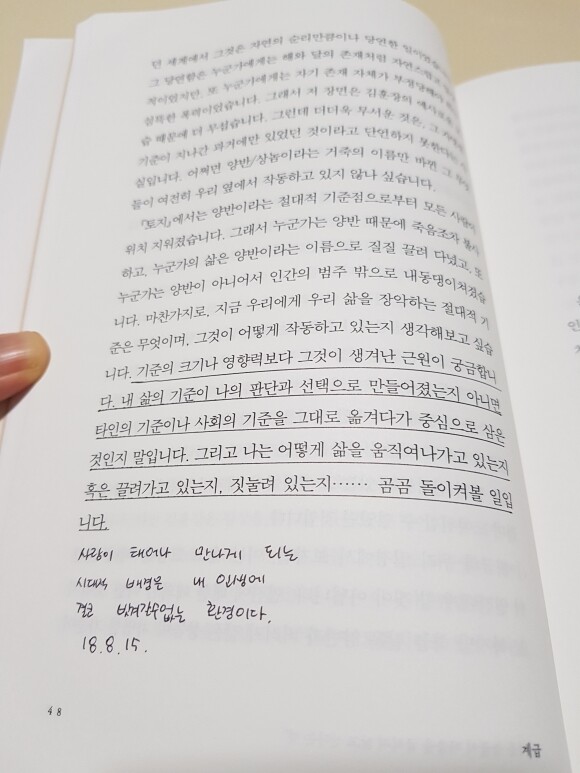 던 세계에서 그것은 자연의 순리만큼이나 당연한 일이었습
그 당연함은 누군가에게는 해와 달의 존재처럼 자연스럽고
적이었지만, 또 누군가에게는 자기 존재 자체가 부정당해야
섬뜩한 폭력이었습니다. 그래서 저 장면은 김훈장의
습 때문에 더 무섭습니다. 그런데 더더욱 무서운 것은, 그
기준이 지나간 과거에만 있었던 것이라고 단언하지 못한다는
실입니다. 어쩌면 양반/상놈이라는 거죽의 이름만 바뀐
들이 여전히 우리 옆에서 작동하고 있지 않나 싶습니다.
『토지』에서는 양반이라는 절대적 기준점으로부터 모든
위치 지워졌습니다. 그래서 누군가는 양반 때문에 죽음조차
하고, 누군가의 삶은 양반이라는 이름으로 질질 끌려 다녔고, 또
누군가는 양반이 아니어서 인간의 범주 밖으로 내동댕이쳐졌습
니다. 마찬가지로, 지금 우리에게 우리 삶을 장악하는 절대적 기
준은 무엇이며, 그것이 어떻게 작동하고 있는지 생각해보고 싶습
니다. 기준의 크기나 영향력보다 그것이 생겨난 근원이 궁금합니
다. 내 삶의 기준이 나의 판단과 선택으로 만들어졌는지 아니면
타인의 기준이나 사회의 기준을 그대로 옮겨다가 중심으로 삼은
것인지 말입니다. 그리고 나는 어떻게 삶을 움직여나가고 있는지
혹은 끌려가고 있는지, 짓눌려 있는지…… 곰곰 돌이켜볼 일입
니다.
사람이 태어나 만나게 되는
시대적 배경은 내 인생에
결코 빗겨갈수없는 환경이다.
18.8.15.
48
계급